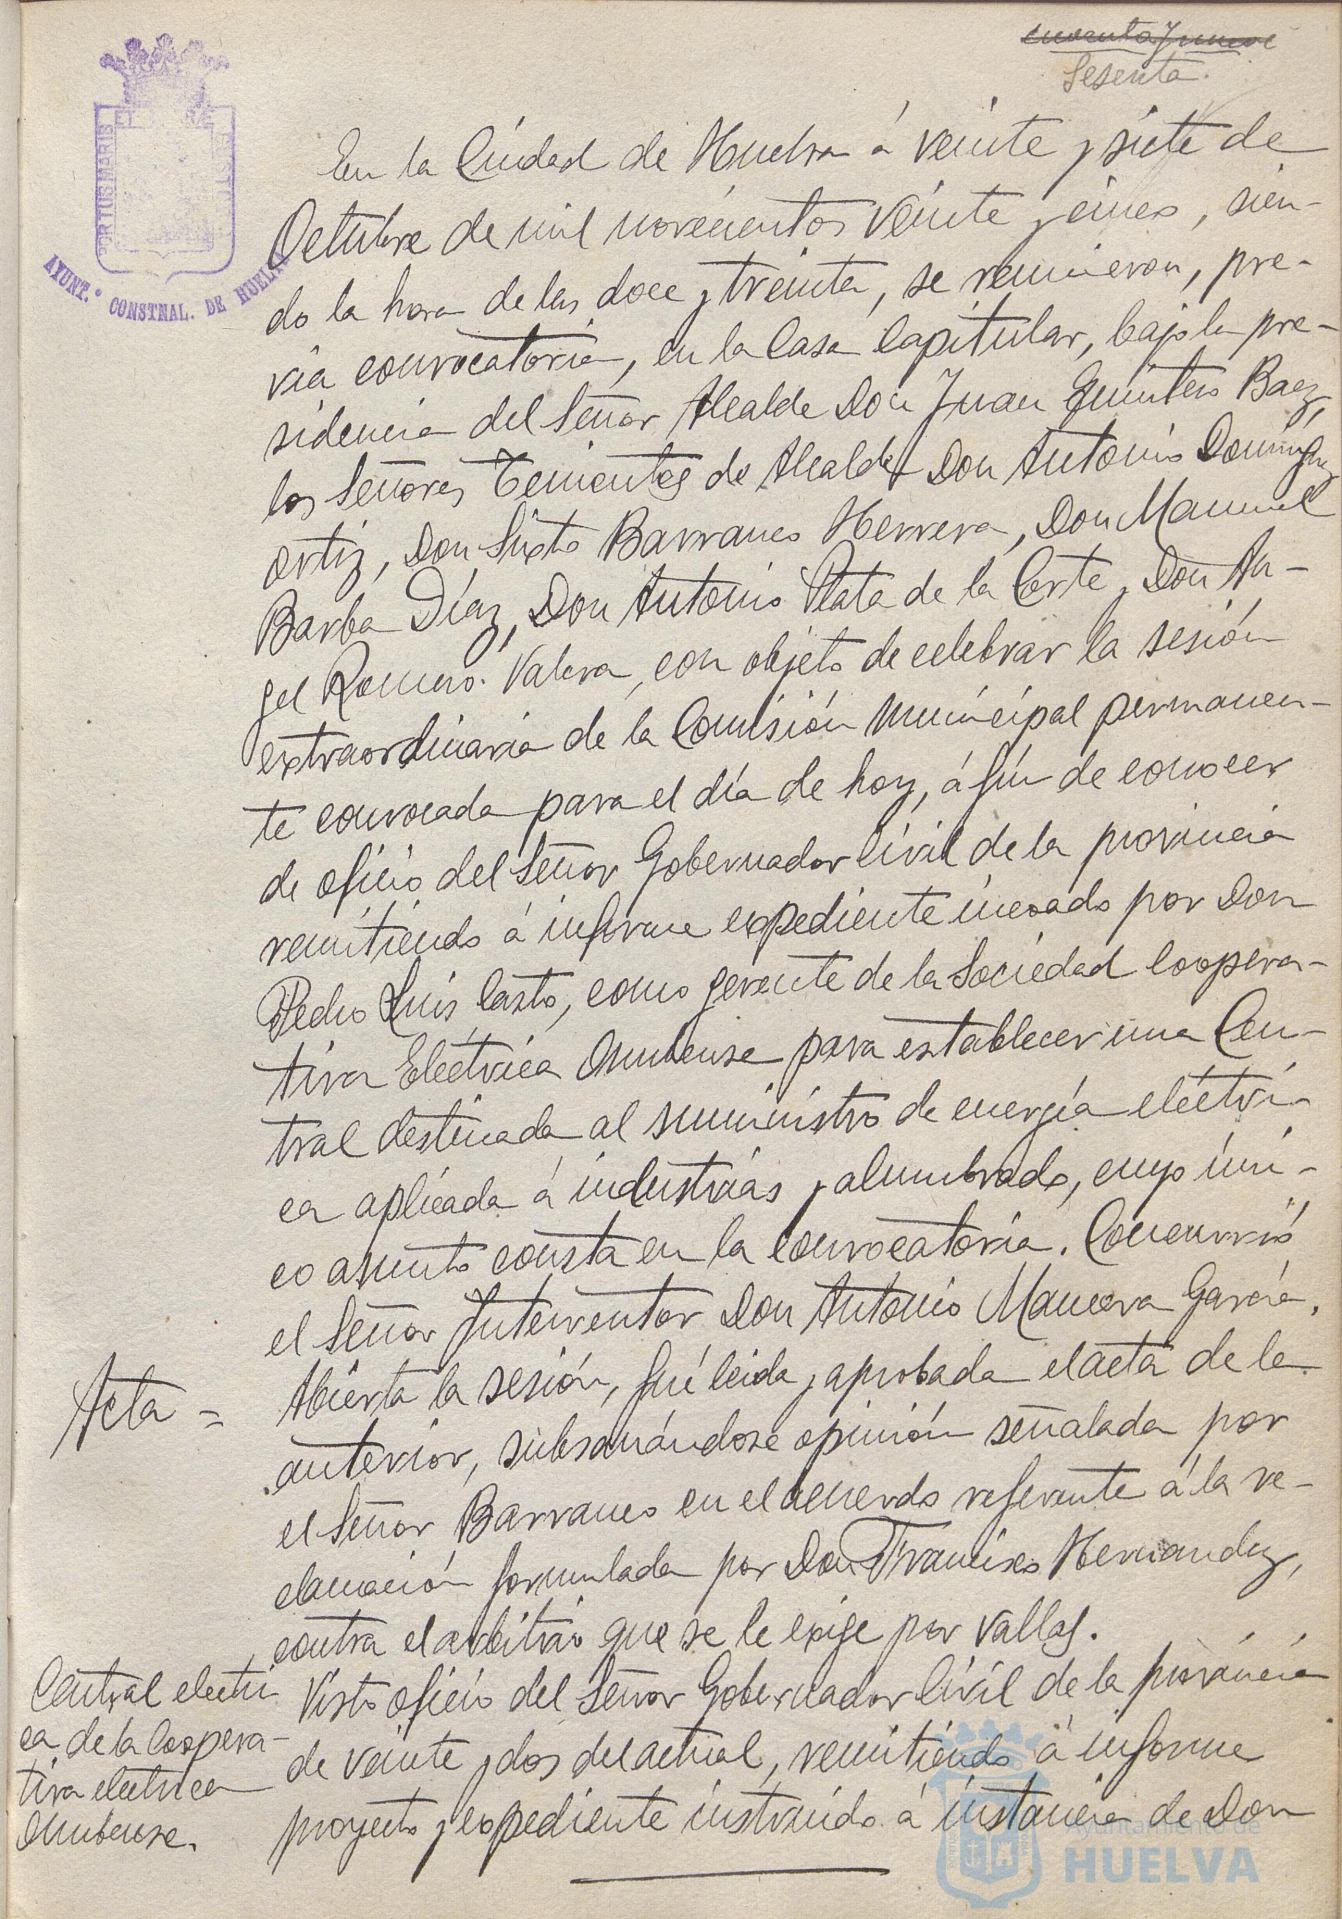 cuarenta y nueve
Sesenta.
PORTUS MARIS ET TERRÆ CUSTODIA
AYUNT.º CONSTNAL. DE HUELVA
En la Ciudad de Huelva á veinte y siete de
Octubre de mil novecientos veinte y cinco, sien-
do la hora de las doce y treinta, se reunieron, pre-
via convocatoria, en la Casa Capitular, bajo la pre-
sidencia del Señor Alcalde Don Juan Quintero Baez,
los Señores Tenientes de Alcalde Don Antonio Dominguez
Ortiz, Don Sixto Barranco Herrera, Don Manuel
Barba Díaz, Don Antonio Plata de la Corte y Don An-
gel Romero Valera, con objeto de celebrar la sesión
extraordinaria de la Comisión Municipal permanen-
te convocada para el día de hoy, á fín de conocer
de oficio del Señor Gobernador Civil de la provincia
remitiendo á informe expediente incoado por Don
Pedro Luis Casto, como gerente de la Sociedad Coopera-
tiva Eléctrica Onubense para establecer una Cen-
tral destinada al suministro de energía eléctri-
ca aplicada á industrias y alumbrado, cuyo úni-
co asunto consta en la convocatoria. Concurrió
el Señor Interventor Don Antonio Mancera García.
Acta =
Abierta la sesión, fué leida y aprobada el acta de la
anterior, subsanándose opinión señalada por
el Señor Barranco en el acuerdo referente á la re-
clamación formulada por Don Francisco Hernandez,
contra el arbitrio que se le exige por vallas.
Central electri
ca de la Coopera-
tiva electrica
Onubense.
Visto oficio del Señor Gobernador Civil de la provincia
de veinte y dos del actual, remitiendo á informe
proyecto y expediente instruido á instancia de Don
Ayuntamiento de
HUELVA